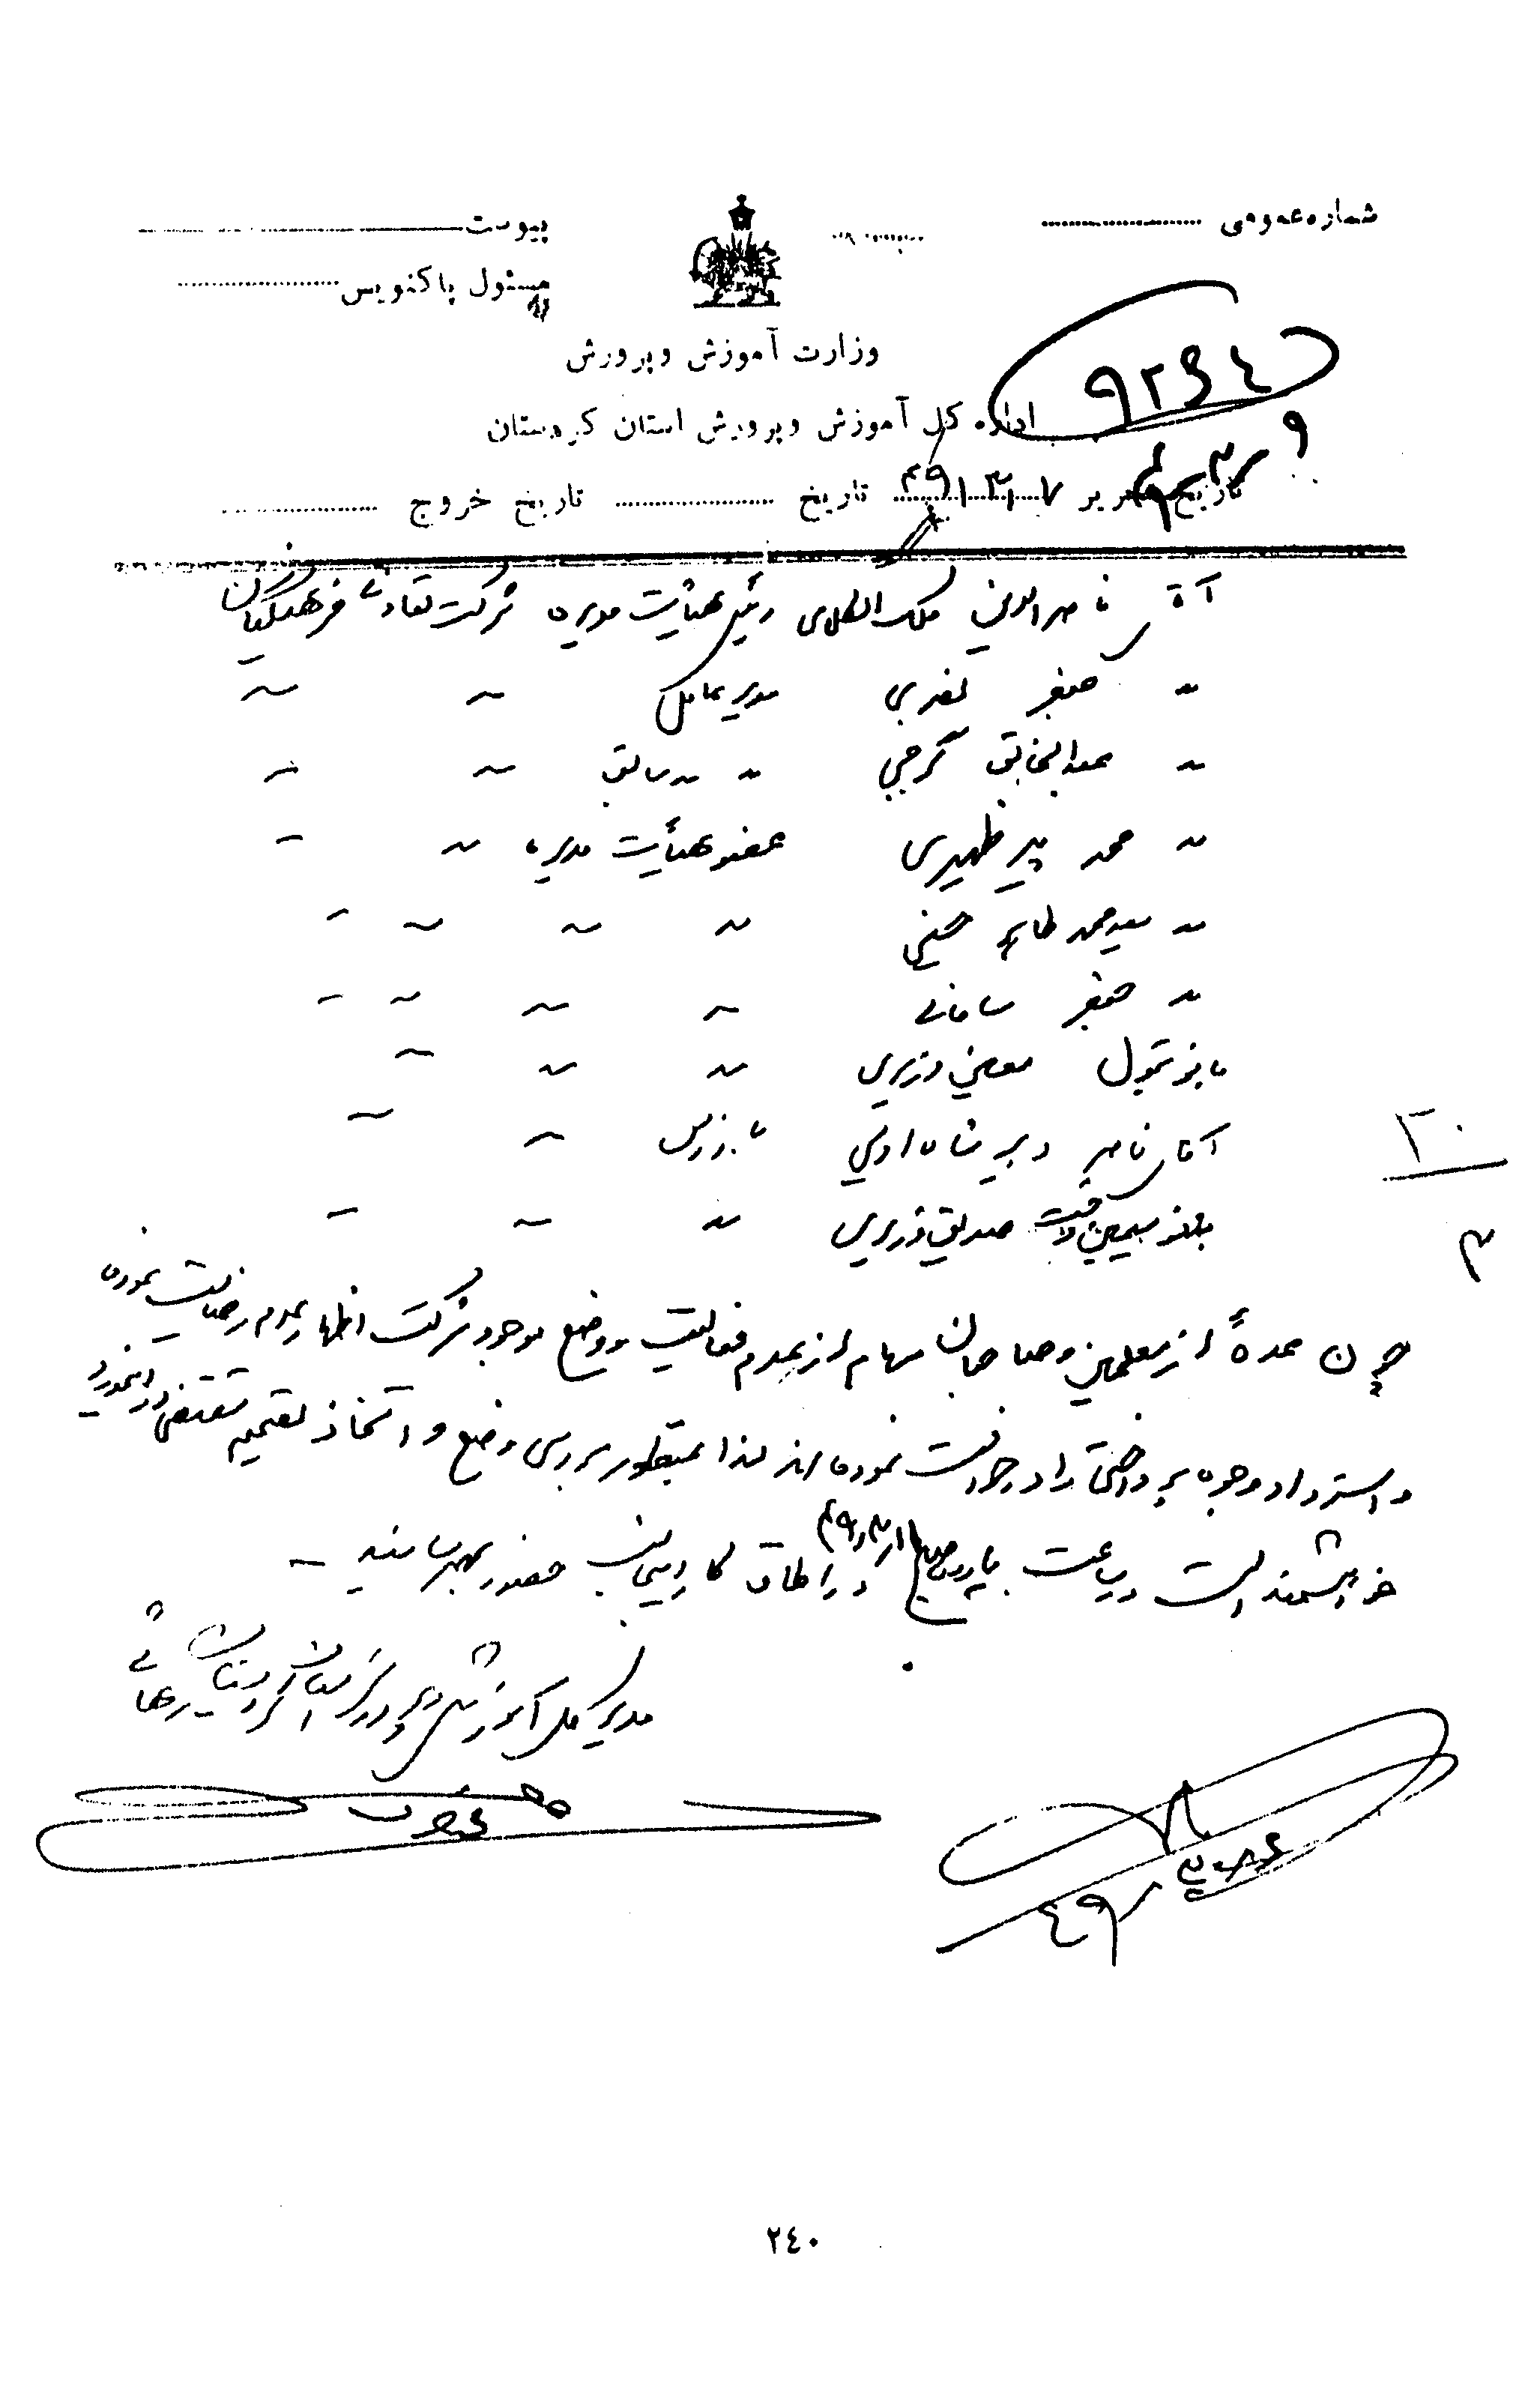 شماره عمومی
پیوست
مسئول پاکنویس
وزارت آموزش و پرورش
اداره کل آموزش و پرورش استان کردستان
۹۲۶۴
تاریخ تحریر ۴۹/۳/۷ تاریخ تاریخ خروج
آقای ناصرالدین ملک الکلامی رئیس هیأت مدیره شرکت تعاونی فرهنگیان
〃 صغیر نصری مدیر عامل 〃 〃
〃 عبدالخالق گرجی 〃 〃 سابق 〃 〃
〃 محمد پیر ظهیری عضو هیأت مدیره 〃 〃
〃 سید محمد طاهر حسینی 〃 〃 〃 〃
〃 صغیر سامانی 〃 〃 〃 〃
بانو بتول معینی وزیری 〃 〃 〃
آقای ناصر دبیر شاه اویسی بازرس 〃 〃
بانو سیمین دخت صدیق وزیری 〃 〃 〃
۳۰
۳
چون عدهٔ از معلمین و صاحبان سهام از عدم فعالیت و وضع موجود شرکت اظهار عدم رضایت نموده
و استرداد وجوه پرداختی را درخواست نموده اند لذا بمنظور بررسی وضع و اتخاذ تصمیم مقتضی در اینمورد
خواهشمند است در ساعت صبح در اطاق کار اینجانب حضور بهم رسانید
مدیر کل آموزش و پرورش استان کردستان
۲۴۰